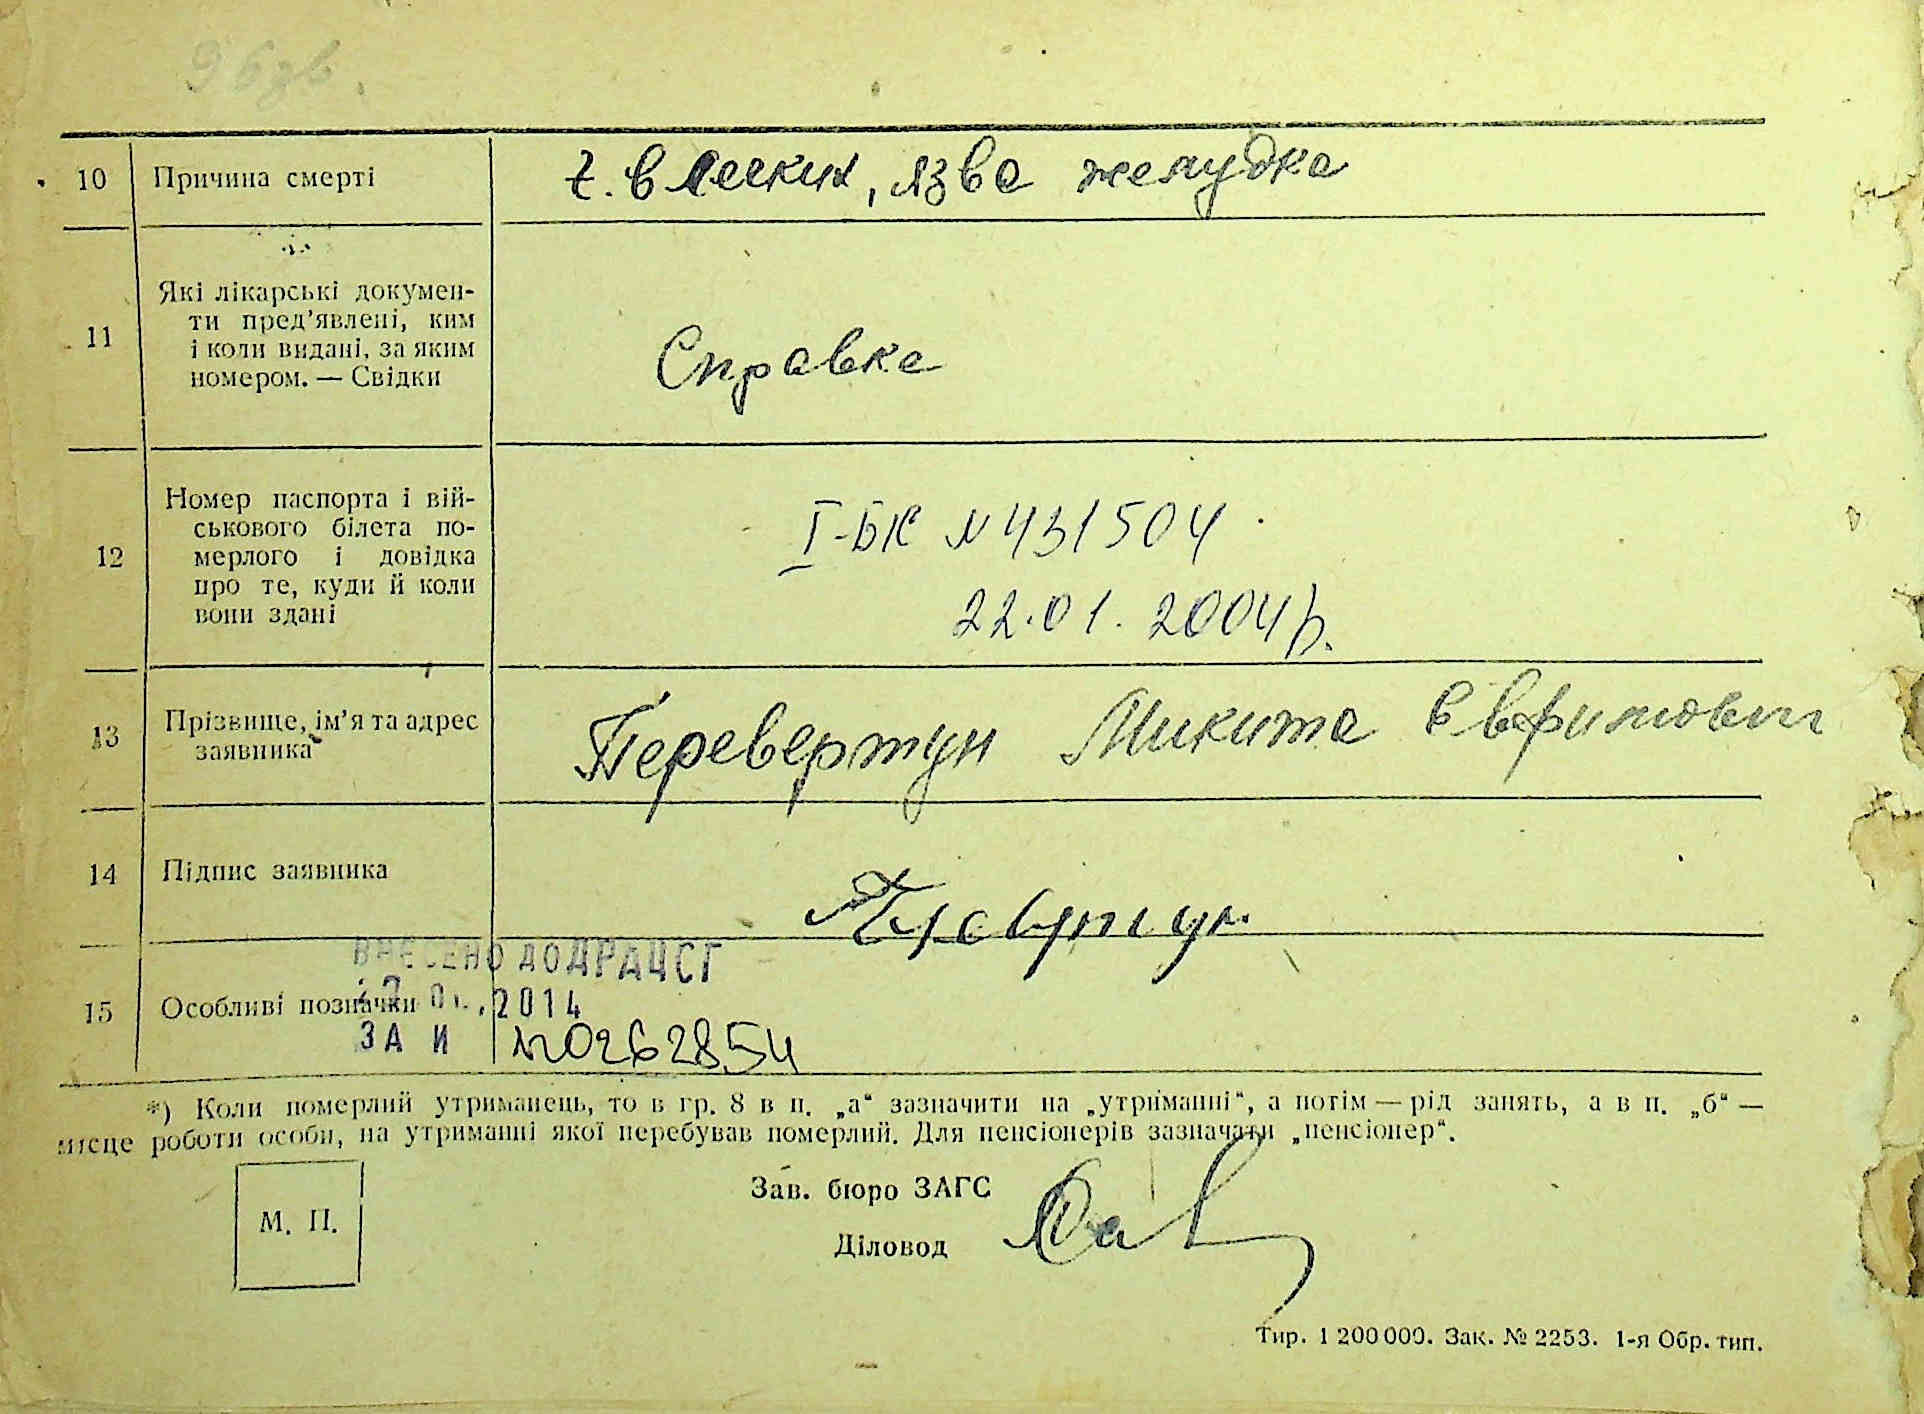 96зв.
10 Причина смерті t. в легких, язва желудка
11 Які лікарські докумен-
ти пред'явлені, ким
і коли видані, за яким
номером. — Свідки
Справка
12 Номер паспорта і вій-
ськового білета по-
мерлого і довідка
про те, куди й коли
вони здані
І-БК N 431504
22.01.2004р.
13 Прізвище, ім'я та адрес
заявника
Перевертун Микита Євфимович
14 Підпис заявника
15 Особливі позначки
ВНЕСЕНО ДО ДРАЦСГ
2014
ЗА № 0262854
*) Коли померлий утриманець, то в гр. 8 в п. „а“ зазначити на „утриманні“, а потім — рід занять, а в п. „б“ —
місце роботи особи, на утриманні якої перебував померлий. Для пенсіонерів зазначати „пенсіонер“.
М. П.
Зав. бюро ЗАГС
Діловод
Тир. 1 200 000. Зак. № 2253. 1-я Обр. тип.